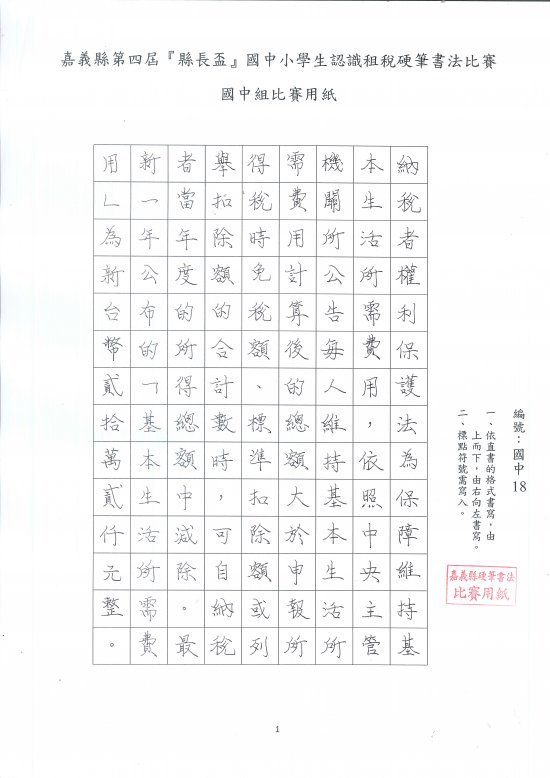 嘉義縣第四屆『縣長盃』國中小學生認識租稅硬筆書法比賽
國中組比賽用紙
編號：國中18
一、依直書的格式書寫，由
上而下，由右向左書寫。
二、標點符號需寫入。
嘉義縣硬筆書法
比賽用紙
納稅者權利保護法為保障維持基
本生活所需費用，依照中央主管
機關所公告每人維持基本生活所
需費用計算後的總額大於申報所
得稅時免稅額、標準扣除額或列
舉扣除額的合計數時，可自納稅
者當年度的所得總額中減除。最
新一年公布的「基本生活所需費
用」為新台幣貳拾萬貳仟元整。
1